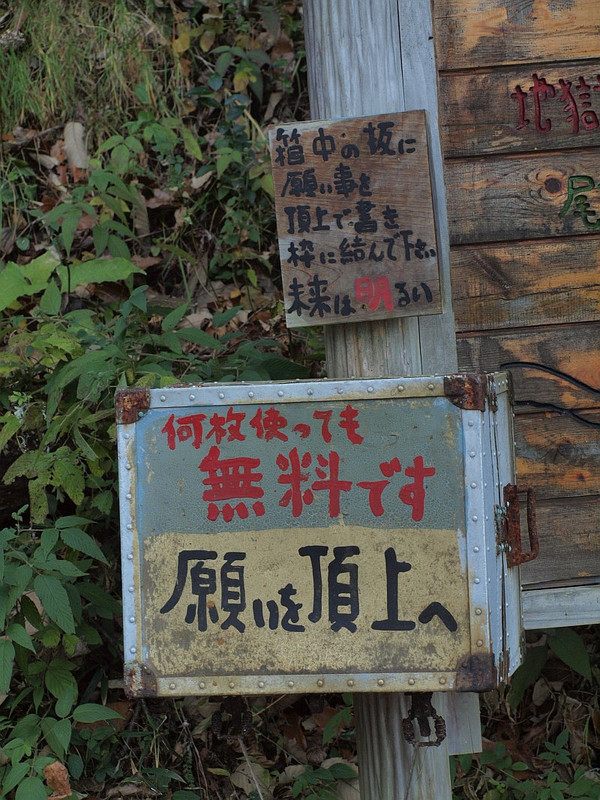 箱中の板に
願い事を
頂上で書き
枠に結んで下さい
未来は明るい
地獄
尾
何枚使っても
無料です
願いを頂上へ